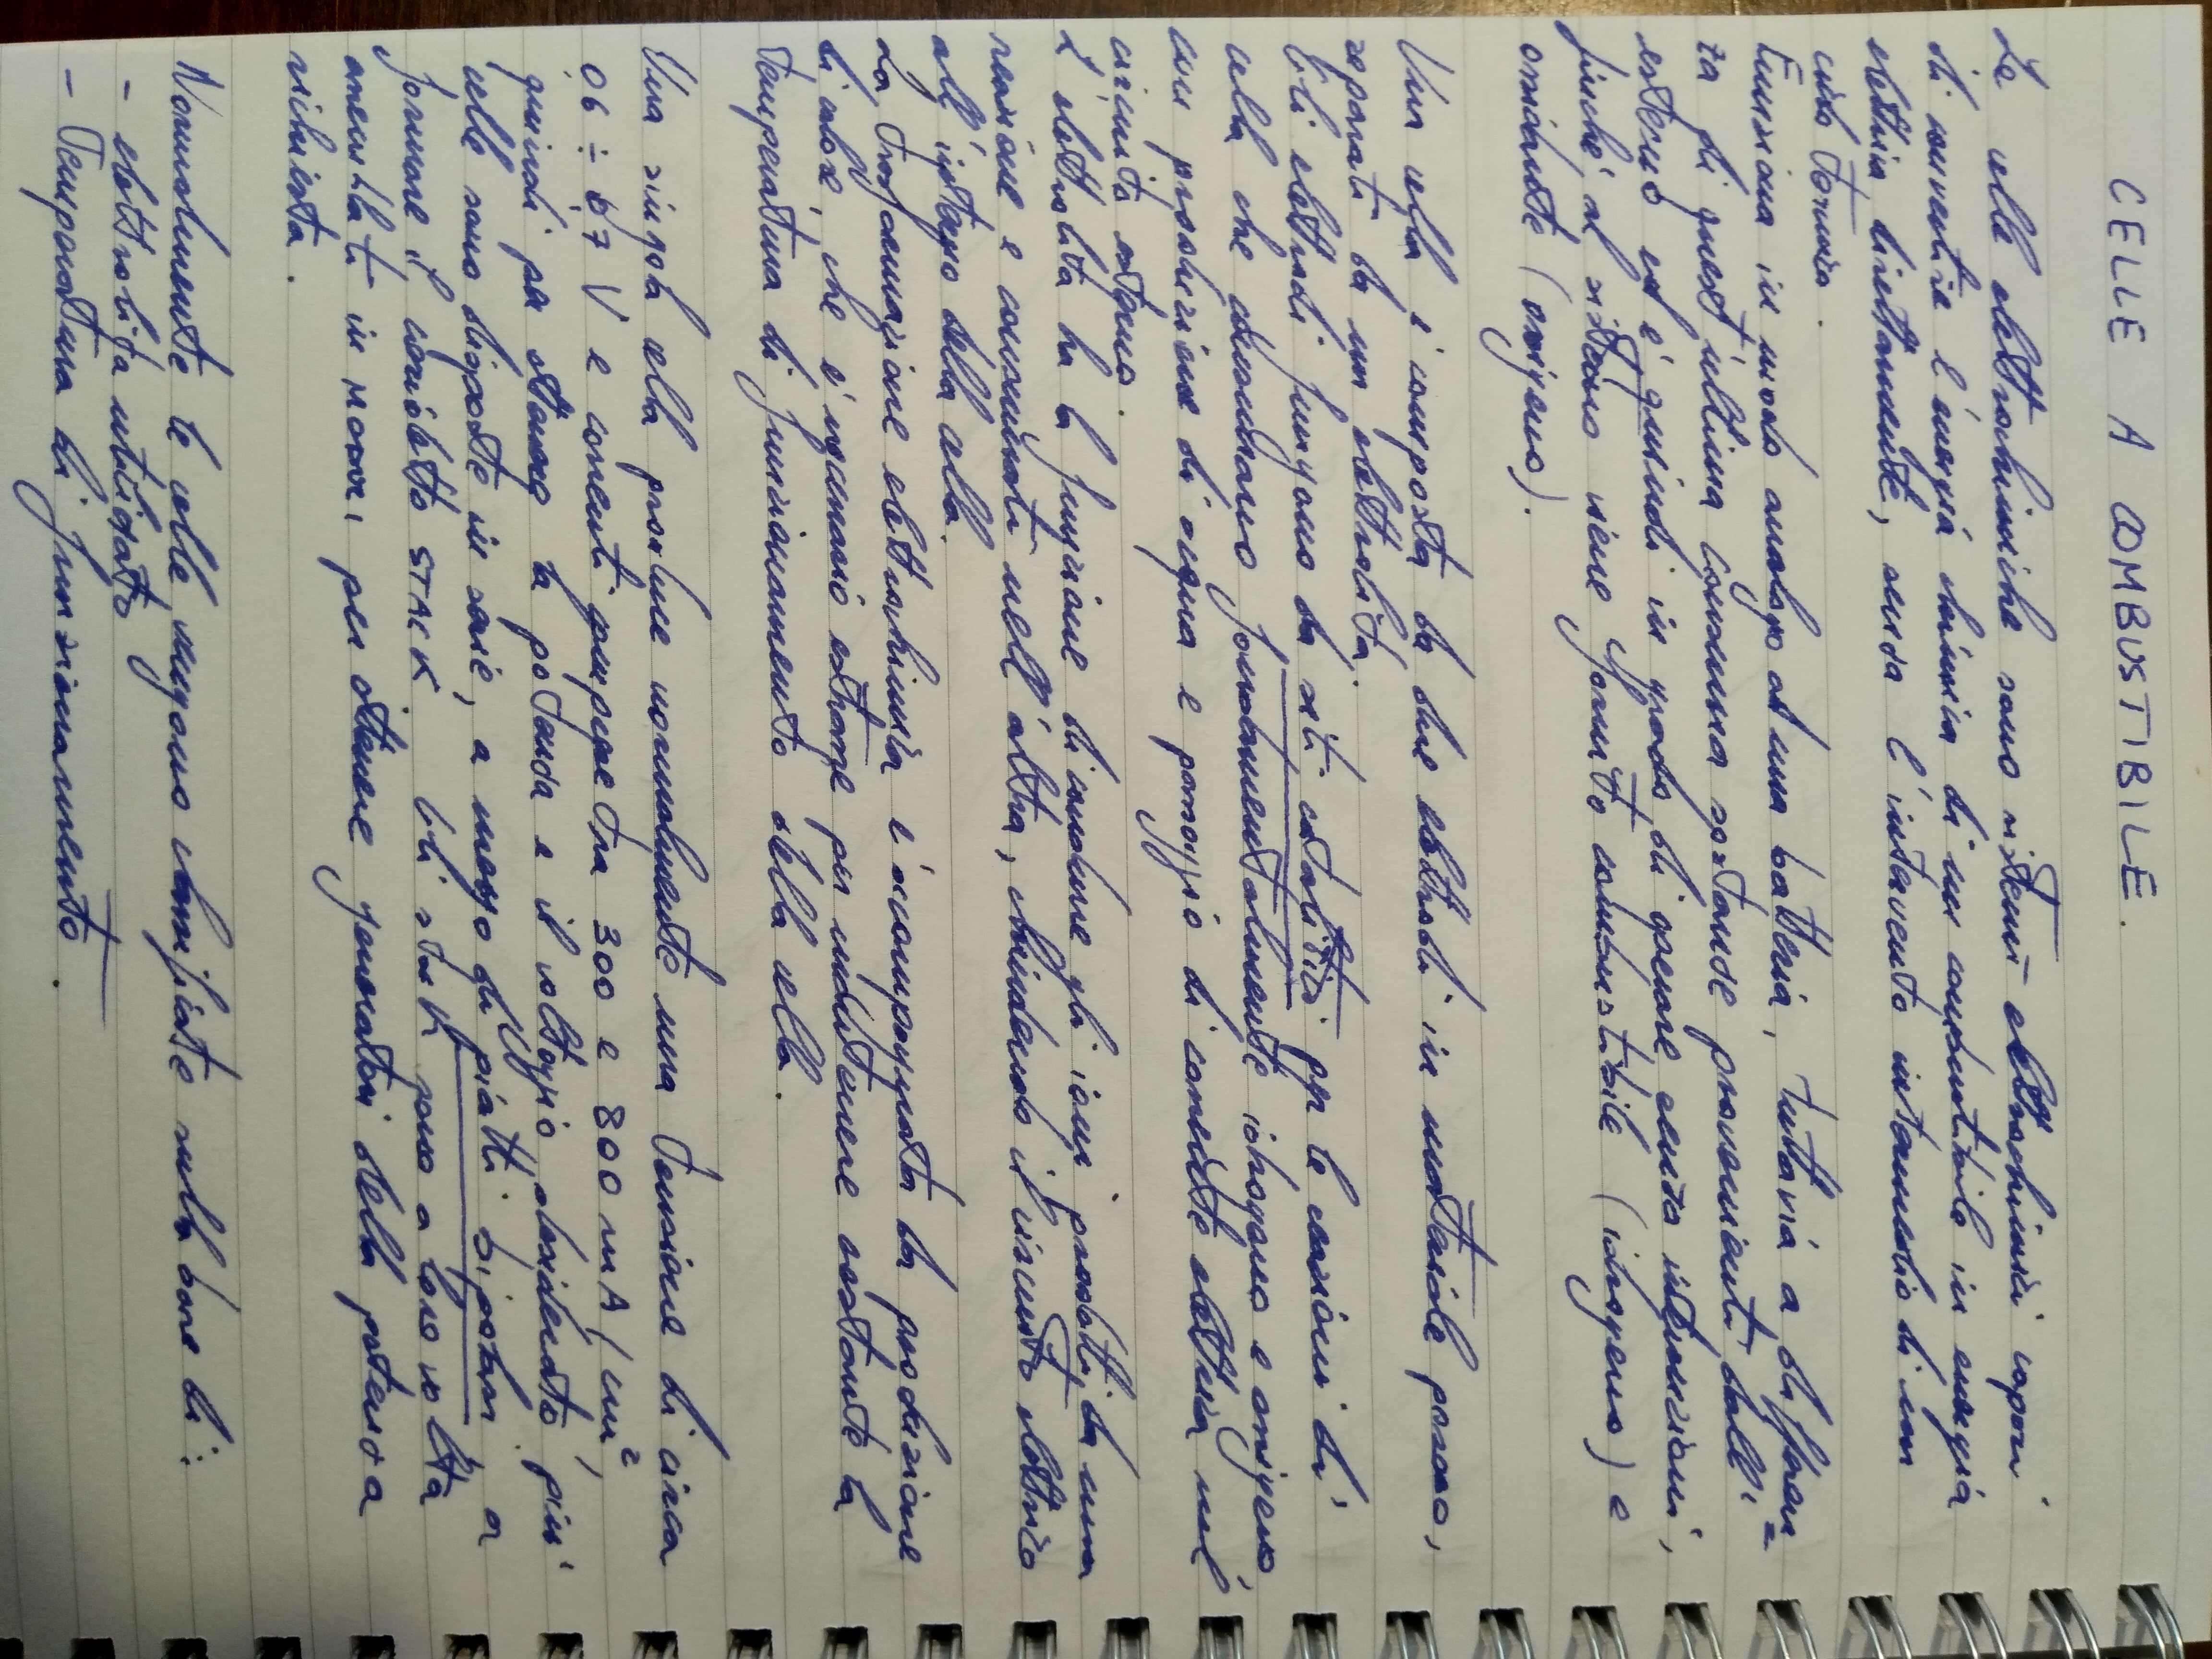 CELLE A COMBUSTIBILE.
Le celle elettrochimiche sono sistemi elettrochimici capaci
di convertire l'energia chimica di un combustibile in energia
elettrica direttamente, senza l'intervento intermedio di un
ciclo termico.
Funziona in modo analogo ad una batteria, tuttavia a differen=
za di quest'ultima consuma sostanze provenienti dall'
esterno ed è quindi in grado di operare senza interruzioni,
finché al sistema viene fornito combustibile (idrogeno) e
ossidante (ossigeno).
Una cella è composta da due elettrodi in materiale poroso,
separati da un elettrolita.
Gli elettrodi fungono da siti catalitici per le reazioni di
cella che consumano fondamentalmente idrogeno e ossigeno,
con produzione di acqua e passaggio di corrente elettrica nel
circuito esterno.
L'elettrolita ha la funzione di condurre gli ioni prodotti da una
reazione e consumati nell'altra, chiudendo il circuito elettrico
all'interno della cella.
La trasformazione elettrochimica è accompagnata da produzione
di calore, che è necessario estrarre per mantenere costante la
temperatura di funzionamento della cella.
Una singola cella produce normalmente una tensione di circa
06 ÷ 0,7 V e correnti comprese tra 300 e 800 mA/cm²,
quindi per ottenere la potenza e il voltaggio desiderato più
celle sono disposte in serie, a mezzo di piatti bipolari a
formare il cosidetto STACK. Gli stack sono a loro volta
assemblati in moduli per ottenere generatori della potenza
richiesta.
Normalmente le celle vengono classificate sulla base di:
- elettrolita utilizzato
- Temperatura di funzionamento.